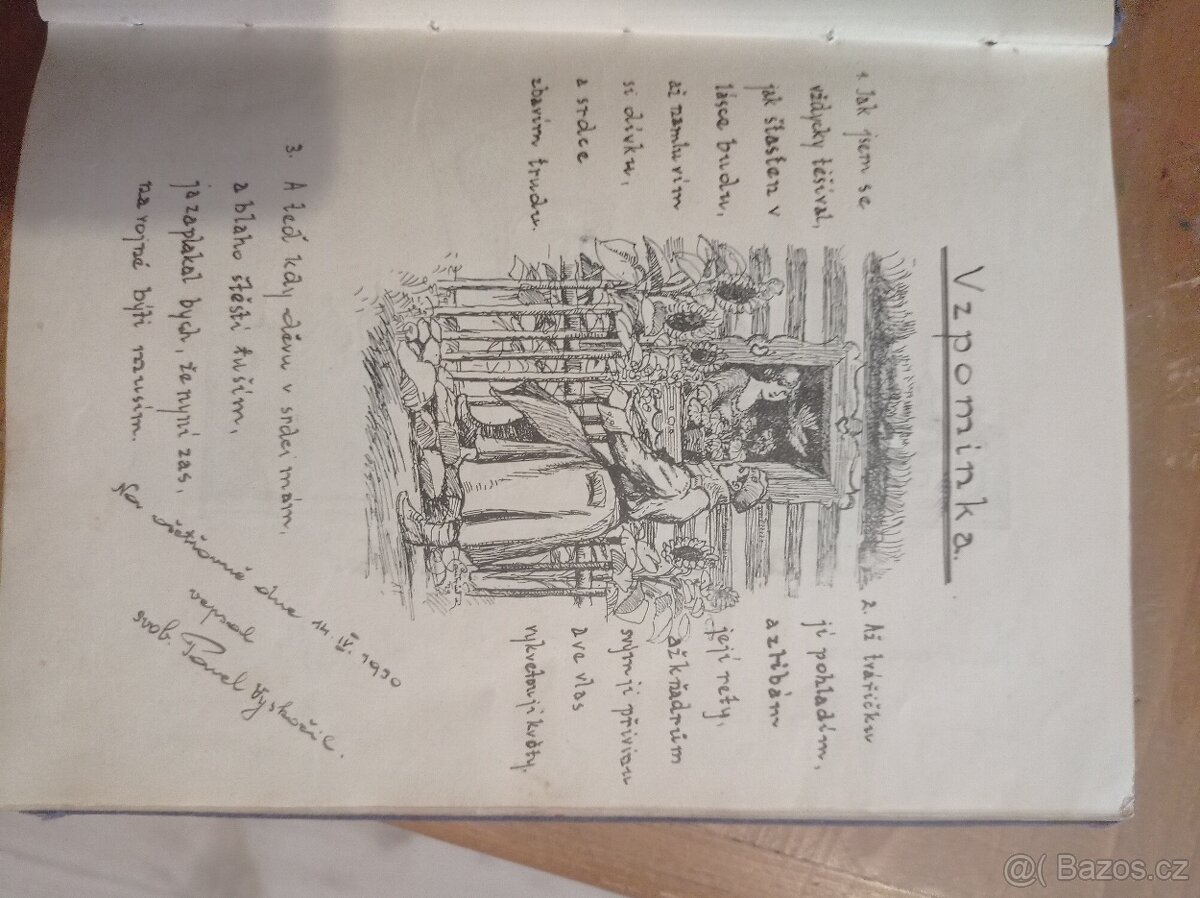 Vzpomínka.
1. Jak jsem se
vždycky těšíval,
jak šťasten v
lásce budu,
až namluvím
si dívku,
a srdce
zbavím trudu.
2. Až tvářičku
jí pohladím,
a zlíbám
její rety,
až k ňadrům
svým ji přivinu
a ve vlas
vykvetou jí květy.
3. A teď kdy děvu v srdci mám,
a blaho štěstí tuším,
já zaplakal bych, že nyní zas,
na vojně býti musím.
dne 14. IV. 1950
vepsal
svob. Pavel Vyskočil.
@( Bazos.cz